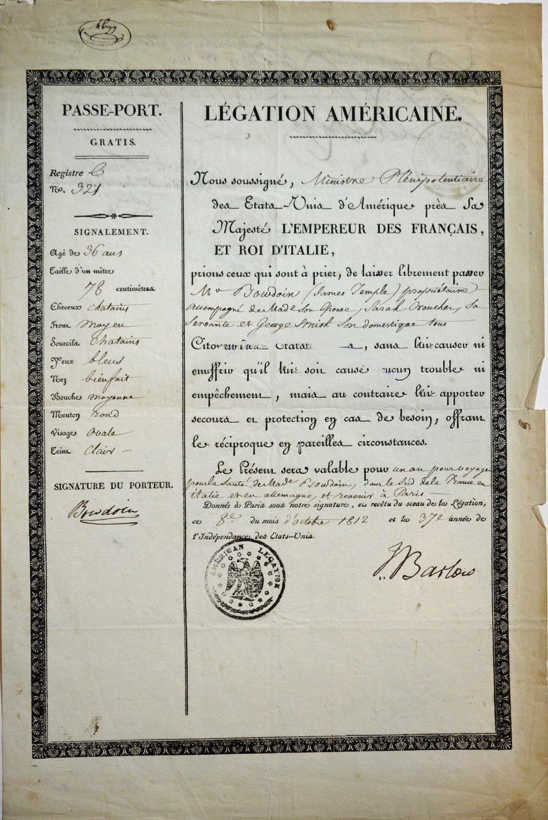 PASSE-PORT.
GRATIS.
Registre C
No. 321
SIGNALEMENT.
Agé de 36 ans
Taille d'un mètre
78 centimètres
Cheveux chatains
Front moyen
Sourcils Chatains
Yeux bleus
Nez bienfait
Bouche moyenne
Menton rond
Visage ovale
Teint clair
SIGNATURE DU PORTEUR.
Bowdoin
LÉGATION AMÉRICAINE.
Nous soussigné, Ministre Plénipotentiaire
des Etats-Unis d'Amérique près Sa
Majesté L'EMPEREUR DES FRANÇAIS,
ET ROI D'ITALIE,
prions ceux qui sont à prier, de laisser librement passer
Mr Bowdoin (James Temple) propriétaire
accompagné de Made son épouse, Sarah Croucher, sa
servante et George Smith son domestique tous
Citoyens Etats, sans leur causer ni
souffrir qu'il leur soit causé aucun trouble ni
empêchement, mais au contraire leur apporter
secours et protection en cas de besoin, offrant
le réciproque en pareilles circonstances.
Le Présent sera valable pour un an pour voyager
pour la Santé de Made Bowdoin, dans le Sud de la France en
italie et en allemagne, et revenir à Paris
Donné à Paris sous notre signature, et revêtu du sceau de la Légation,
ce 8e du mois d'octobre 1812 et la 37e année de
l'Indépendance des Etats-Unis.
J Barlow
AMERICAN LEGATION